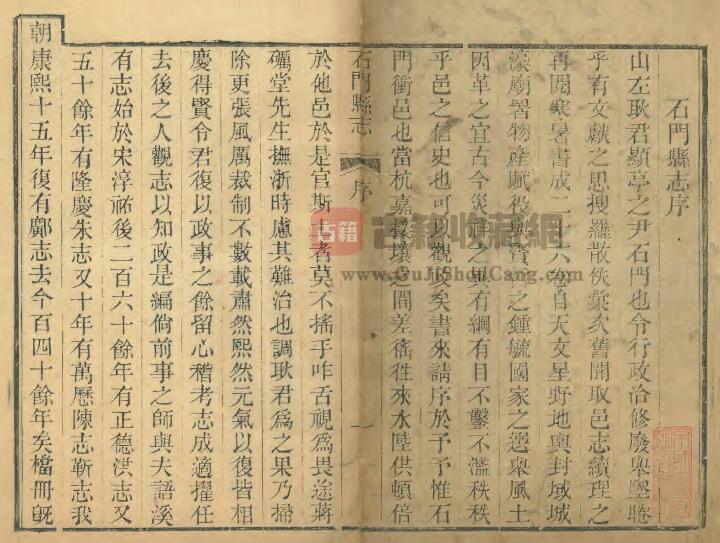 石門縣志序
山左耿君顯亭之尹石門也令行政治修廢與墜睠
乎有文獻之思搜羅散佚彙次舊聞取邑志續理之
再閱寒暑書成二十六卷自天文星野地輿封域城
濠廟署物產賦役與賢之鍾毓國家之選與風土
因革之宜古今災祥之異有綱有目不鑿不濫秩秩
乎邑之信史也可以觀政矣書來請序於予予惟石
門衝邑也當杭嘉接壤之間差徭徃來水陸供頓倍
石門縣志
序
一
於他邑於是官斯土者莫不搖手咋舌視爲畏途蔣
礪堂先生撫浙時慮其難治也調耿君爲之果乃掃
除更張風厲裁制不數載肅然熙然元氣以復皆相
慶得賢令君復以政事之餘留心稽考志成適擢任
去後之人觀志以知政是編倘前事之師與夫語溪
有志始於宋淳祐後二百六十餘年有正德洪志又
五十餘年有隆慶朱志又十年有萬歷陳志靳志我
朝康熙十五年復有鄺志去今百四十餘年矣檔冊旣
古籍
古籍收藏網
www.GuJiShouCang.com